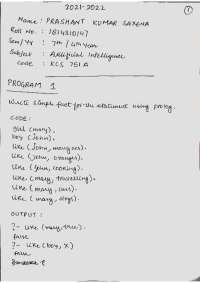 2021-2022
1
Name : PRASHANT KUMAR SAXENA
Roll No. : 1874310147
Sem/Yr : 7th / 4th Year
Subject : Artificial Intelligence
Code : KCS 751A
PROGRAM 1
Write simple fact for the statement using prolog.
CODE:
girl (mary).
boy (John).
like (John, mangoes).
like (John, oranges).
like (John, cooking).
like (mary, travelling).
like (mary, cars).
like (mary, dogs).
OUTPUT :
?- like (mary,
false
?- like (boy, x)
false